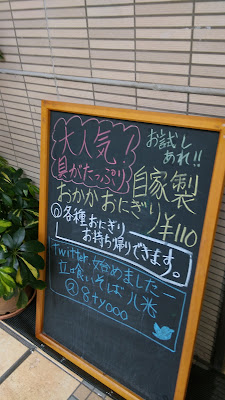 大人気!
具がたっぷり
お試し
あれ!!
自家製
おかかおにぎり¥110
各種おにぎり
お持ち帰りできます。
Twitter 始めましたー
立喰いそば 八米
@8tyooo